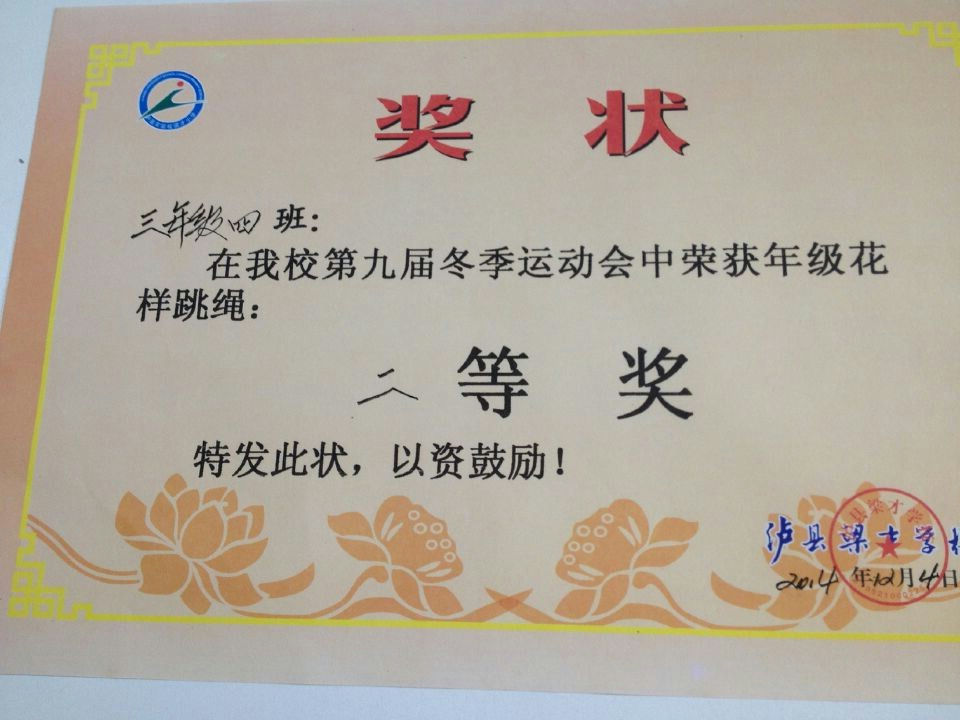 奖 状
三年级四 班：
在我校第九届冬季运动会中荣获年级花
样跳绳：
二 等 奖
特发此状，以资鼓励！
泸县梁才学校
2014年12月4日